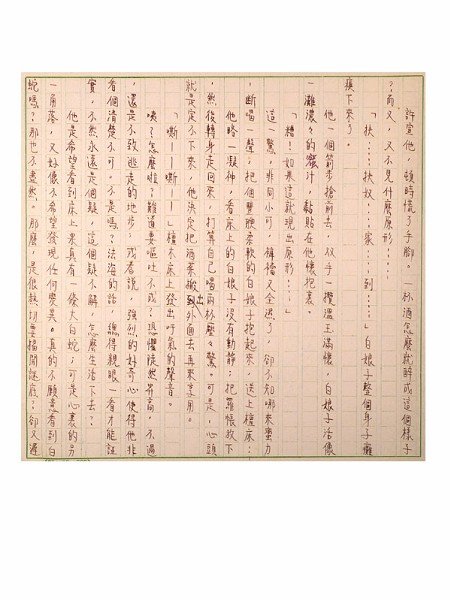 許當他頓時慌了手腳。一杯酒怎麼就醉成這個樣子
?而又,又不是什麼原形……
「扶……扶奴……家……到……」白娘子整個身子癱
瘓下來了。
他一個箭步搶前去,双手一攬溫玉滿懷,白娘子活像
一灘濃々的蜜汁,黏貼在他懷抱裏。
「糟!如果這就現出原形……」
這一驚,非同小可,褲襠又全濕了,卻不知哪來蠻力
,斷喝一聲,把個豐腴柔軟的白娘子抱起來,送上檀床…
他略一凝神,看床上的白娘子沒有動靜,把羅帳放下
,然後轉身走回來,打算自己喝兩杯壓々驚。可是,心頭
就是定不下來,他決定把酒菜搬出到外面去再來享用。
「嘶——嘶——」檀木床上發出呼氣的聲音。
咦?怎麼啦?難道要嘔吐不成?恐懼陡然昇高,不過
,還是不致逃走的地步,或者說,強烈的好奇心使得他非
看個清楚不可。不是嗎?法海的話,總得親眼一看才能証
實,不然永遠是個疑,這個疑不解,怎麼生活下去…
他是希望看到床上果真有一條大白蛇,可是心裏的另
一角落,又好像不希望發現任何變異。真的不願意看到白
蛇嗎?那也不盡然。那麼,是很熱切要揭開謎底?卻又遲